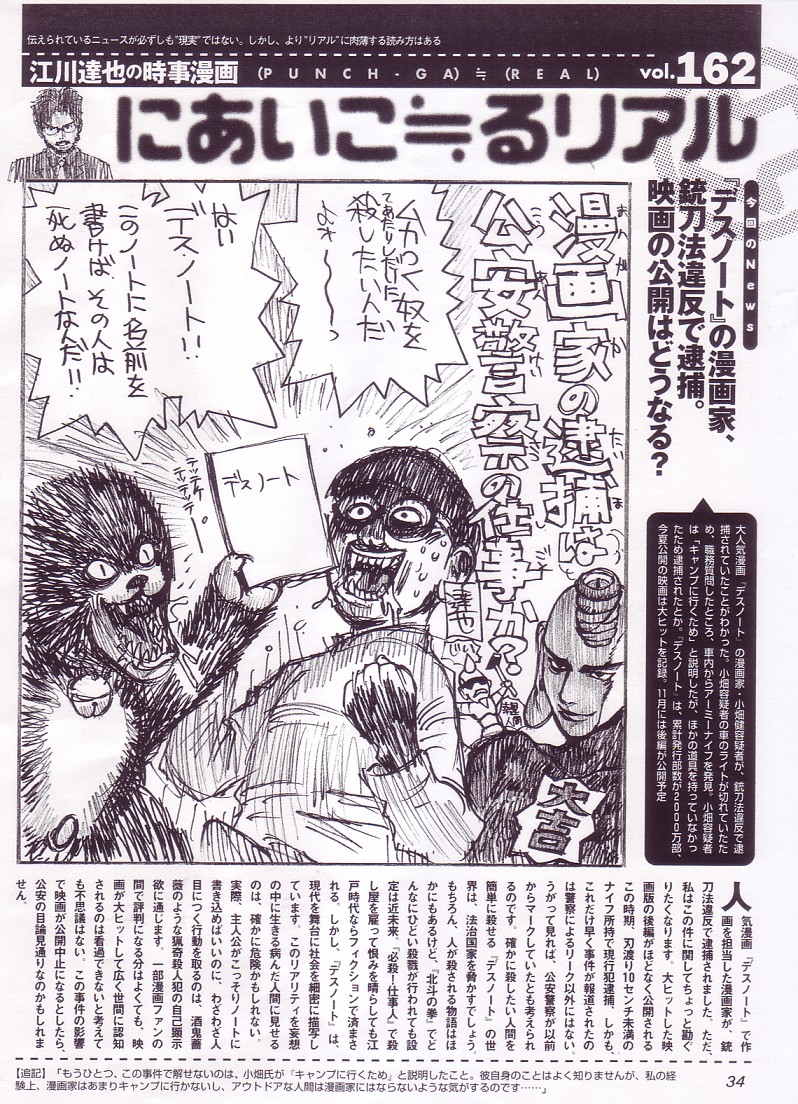 伝えられているニュースが必ずしも“現実”ではない。しかし、より“リアル”に肉薄する読み方はある
江川達也の時事漫画 (PUNCH-GA)≒(REAL) vol.162
にあいこ≒るリアル
今回のNews
『デスノート』の漫画家、
銃刀法違反で逮捕。
映画の公開はどうなる?
大人気漫画『デスノート』の漫画家・小畑健容疑者が、銃刀法違反で逮
捕されていたことがわかった。小畑容疑者の車のライトが切れていたた
め、職務質問したところ、車内からアーミーナイフを発見。小畑容疑者
は「キャンプに行くため」と説明したが、ほかの道具を持っていなかっ
たため逮捕されたとか。『デスノート』は、累計発行部数が2000万部、
今夏公開の映画は大ヒットを記録。11月には後編が公開予定
漫画家の逮捕は
まんがかたいほ
公安警察の仕事か?
こうあんけい
ムカつく奴を
てあたりしだいに
殺したいんだ
よォ〜〜っ
はい
デスノート!!
このノートに名前を
書けば、その人は
死ぬノートなんだ!!
デスノート
達也
大吉
人気漫画『デスノート』で作
画を担当した漫画家が、銃
刀法違反で逮捕されました。ただ、
私はこの件に関してちょっと勘ぐ
りたくなります。大ヒットした映
画版の後編がほどなく公開される
この時期、刃渡り10センチ未満の
ナイフ所持で現行犯逮捕、しかも、
これだけ早く事件が報道されたの
は警察によるリーク以外にはない。
うがって見れば、公安警察が以前
からマークしていたとも考えられ
るのです。確かに殺したい人間を
簡単に殺せる『デスノート』の世
界は、法治国家を脅かすでしょう。
もちろん、人が殺される物語はほ
かにもあるけど、『北斗の拳』でど
んなにひどい殺戮が行われても設
定は近未来、『必殺!仕事人』で殺
し屋を雇って恨みを晴らしても江
戸時代ならフィクションで済まさ
れる。しかし、『デスノート』は、
現代を舞台に社会を細密に描写し
ています。このリアリティを妄想
の中に生きる病んだ人間に見せる
のは、確かに危険かもしれない。
実際、主人公がこっそりノートに
書き込めばいいのに、わざわざ人
目につく行動を取るのは、酒鬼薔
薇のような猟奇殺人犯の自己顕示
欲に通じます。一部漫画ファンの
間で評判になる分はよくても、映
画が大ヒットして広く世間に認知
されるのは看過できないと考えて
も不思議はない。この事件の影響
で映画が公開中止になるとしたら、
公安の目論見通りなのかもしれま
せん。
【追記】「もうひとつ、この事件で解せないのは、小畑氏が『キャンプに行くため』と説明したこと。彼自身のことはよく知りませんが、私の経
験上、漫画家はあまりキャンプに行かないし、アウトドアな人間は漫画家にはならないような気がするのです……」
34